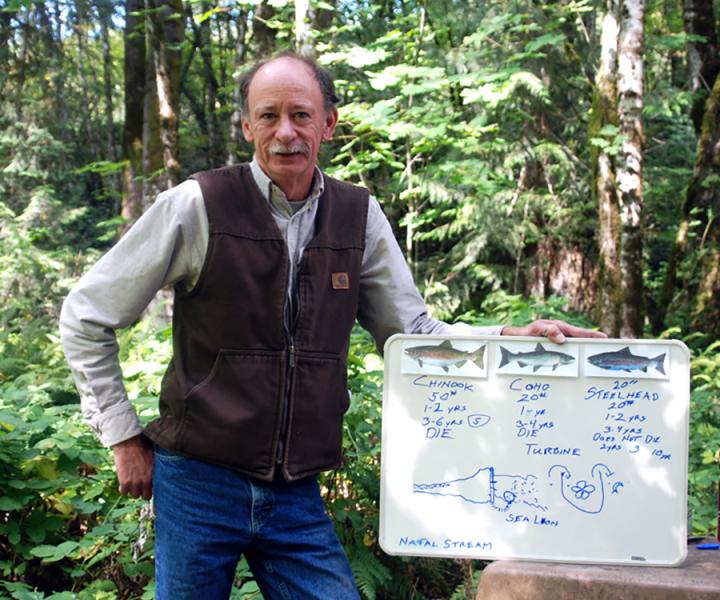 CHINOOK
50#
1-2 YRS
3-6 YRS 5
DIE
COHO
20#
1-YR
3-4 YRS
DIE
STEELHEAD
20#
1-2 YRS
3-4 YRS
DOES NOT DIE
2 YRS 3 10 YR
TURBINE
SEA LION
NATAL STREAM